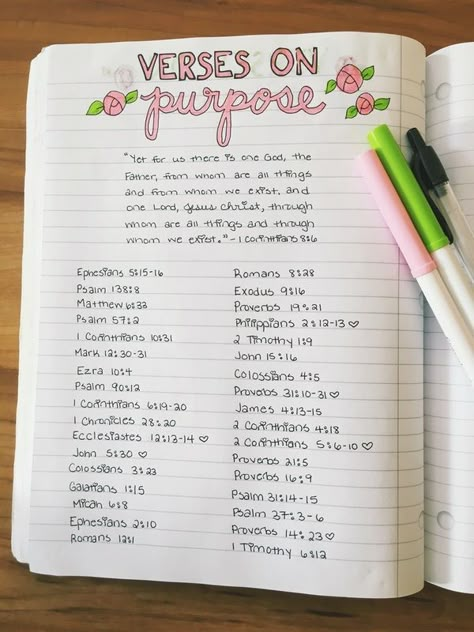 VERSES ON
purpose
"Yet for us there is one God, the
Father, from whom are all things
and from whom we exist, and
one Lord, Jesus Christ, through
whom are all things and through
whom we exist." - 1 Corinthians 8:6
Ephesians 5:15-16
Psalm 138:8
Matthew 6:33
Psalm 57:2
1 Corinthians 10:31
Mark 12:30-31
Ezra 10:4
Psalm 90:12
1 Corinthians 6:19-20
1 Chronicles 28:20
Ecclesiastes 12:13-14 ♡
John 5:30 ♡
Colossians 3:23
Galatians 1:15
Micah 6:8
Ephesians 2:10
Romans 12:1
Romans 8:28
Exodus 9:16
Proverbs 19:21
Philippians 2:12-13 ♡
2 Timothy 1:9
John 15:16
Colossians 4:5
Proverbs 31:10-31 ♡
James 4:13-15
2 Corinthians 4:18
2 Corinthians 5:6-10 ♡
Proverbs 21:5
Proverbs 16:9
Psalm 31:14-15
Psalm 37:3-6
Proverbs 14:23 ♡
1 Timothy 6:12